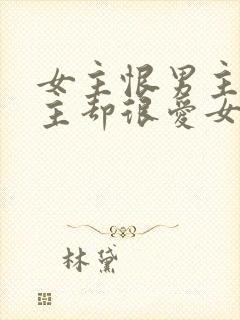 女主恨男主
主却很爱女
林黛